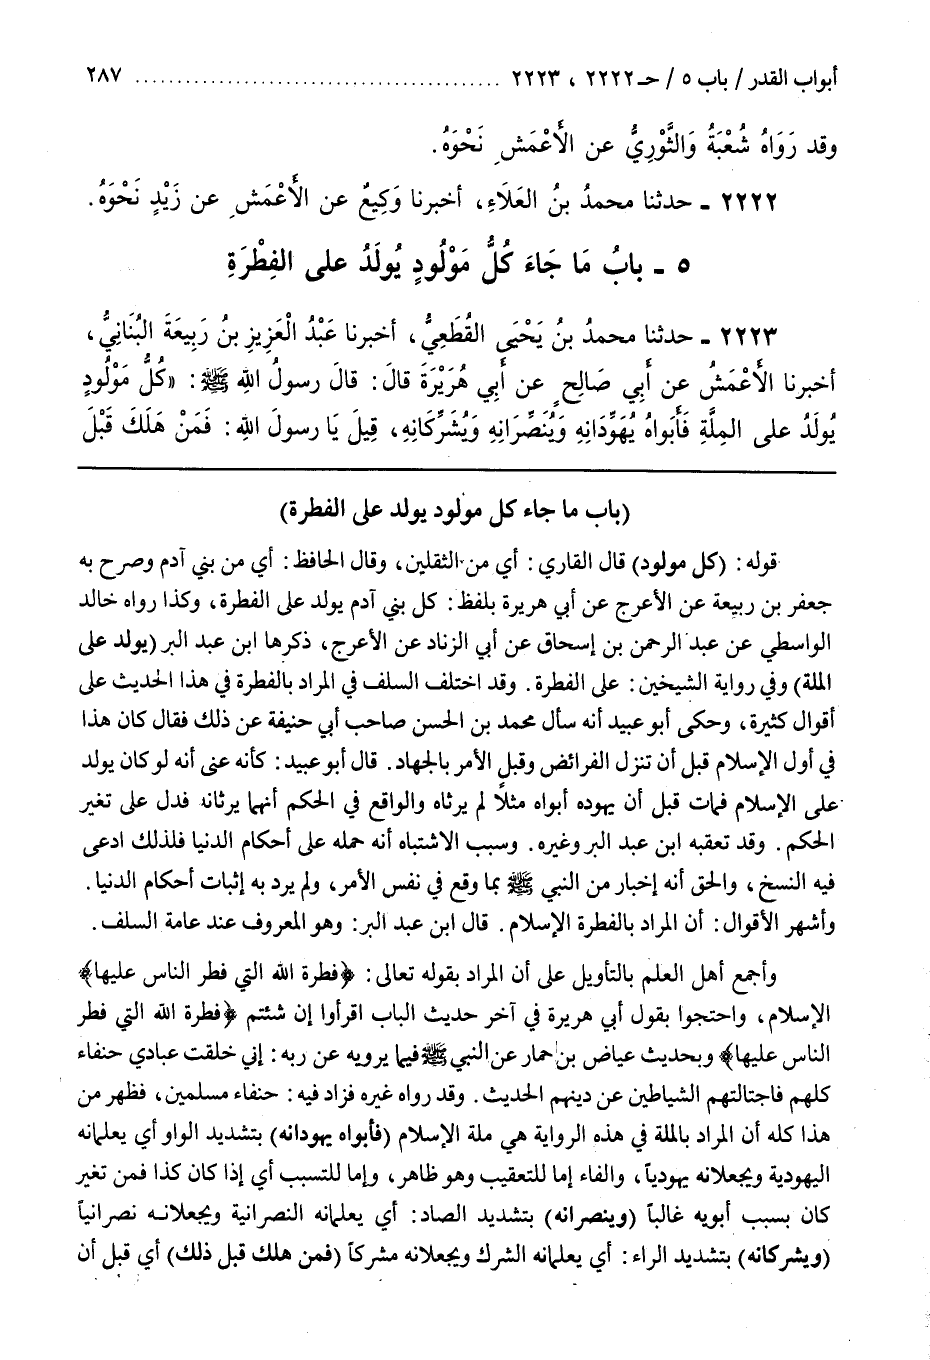 أبواب القدر / باب ٥ / حـ ٢٢٢٢ ، ٢٢٢٣ ........................................ ٢٨٧
وقد رَوَاهُ شُعْبَةُ وَالثَّوْرِيُّ عن الأَعْمَشِ نَحْوَهُ.
٢٢٢٢ ـ حدثنا محمدُ بنُ العَلَاءِ، أخبرنا وَكِيعٌ عن الأَعْمَشِ عن زَيْدٍ نَحْوَهُ.
٥ ـ بابُ مَا جَاءَ كُلُّ مَوْلُودٍ يُولَدُ على الفِطْرَةِ
٢٢٢٣ ـ حدثنا محمدُ بنُ يَحْيَى القُطَعِيُّ، أخبرنا عَبْدُ الْعَزِيزِ بنُ رَبِيعَةَ البُنَانِيُّ،
أخبرنا الأَعْمَشُ عن أَبِي صَالحٍ عن أَبِي هُرَيْرَةَ قالَ: قالَ رسولُ اللهِ ﷺ: «كُلُّ مَوْلُودٍ
يُولَدُ على المِلَّةِ فَأَبَواهُ يُهَوِّدَانِهِ وَيُنَصِّرَانِهِ وَيُشَرِّكَانِهِ، قِيلَ يَا رسولَ اللهِ: فَمَنْ هَلَكَ قَبْلَ
(باب ما جاء كل مولود يولد على الفطرة)
قوله: (كل مولود) قال القاري: أي من الثقلين، وقال الحافظ: أي من بني آدم وصرح به
جعفر بن ربيعة عن الأعرج عن أبي هريرة بلفظ: كل بني آدم يولد على الفطرة، وكذا رواه خالد
الواسطي عن عبد الرحمن بن إسحاق عن أبي الزناد عن الأعرج، ذكرها ابن عبد البر (يولد على
الملة) وفي رواية الشيخين: على الفطرة. وقد اختلف السلف في المراد بالفطرة في هذا الحديث على
أقوال كثيرة، وحكى أبو عبيد أنه سأل محمد بن الحسن صاحب أبي حنيفة عن ذلك فقال كان هذا
في أول الإسلام قبل أن تنزل الفرائض وقبل الأمر بالجهاد. قال أبو عبيد: كأنه عنى أنه لو كان يولد
على الإسلام فمات قبل أن يهوده أبواه مثلاً لم يرثاه والواقع في الحكم أنهما يرثانه فدل على تغير
الحكم. وقد تعقبه ابن عبد البر وغيره. وسبب الاشتباه أنه حمله على أحكام الدنيا فلذلك ادعى
فيه النسخ، والحق أنه إخبار من النبي ﷺ بما وقع في نفس الأمر، ولم يرد به إثبات أحكام الدنيا.
وأشهر الأقوال: أن المراد بالفطرة الإسلام. قال ابن عبد البر: وهو المعروف عند عامة السلف.
وأجمع أهل العلم بالتأويل على أن المراد بقوله تعالى: ﴿فطرة الله التي فطر الناس عليها﴾
الإسلام، واحتجوا بقول أبي هريرة في آخر حديث الباب اقرأوا إن شئتم ﴿فطرة الله التي فطر
الناس عليها﴾ وبحديث عياض بن حمار عن النبي ﷺ فيما يرويه عن ربه: إني خلقت عبادي حنفاء
كلهم فاجتالتهم الشياطين عن دينهم الحديث. وقد رواه غيره فزاد فيه: حنفاء مسلمين، فظهر من
هذا كله أن المراد بالملة في هذه الرواية هي ملة الإسلام (فأبواه يهودانه) بتشديد الواو أي يعلمانه
اليهودية ويجعلانه يهودياً، والفاء إما للتعقيب وهو ظاهر، وإما للتسبب أي إذا كان كذا فمن تغير
كان بسبب أبويه غالباً (وينصرانه) بتشديد الصاد: أي يعلمانه النصرانية ويجعلانه نصرانياً
(ويشركانه) بتشديد الراء: أي يعلمانه الشرك ويجعلانه مشركاً (فمن هلك قبل ذلك) أي قبل أن